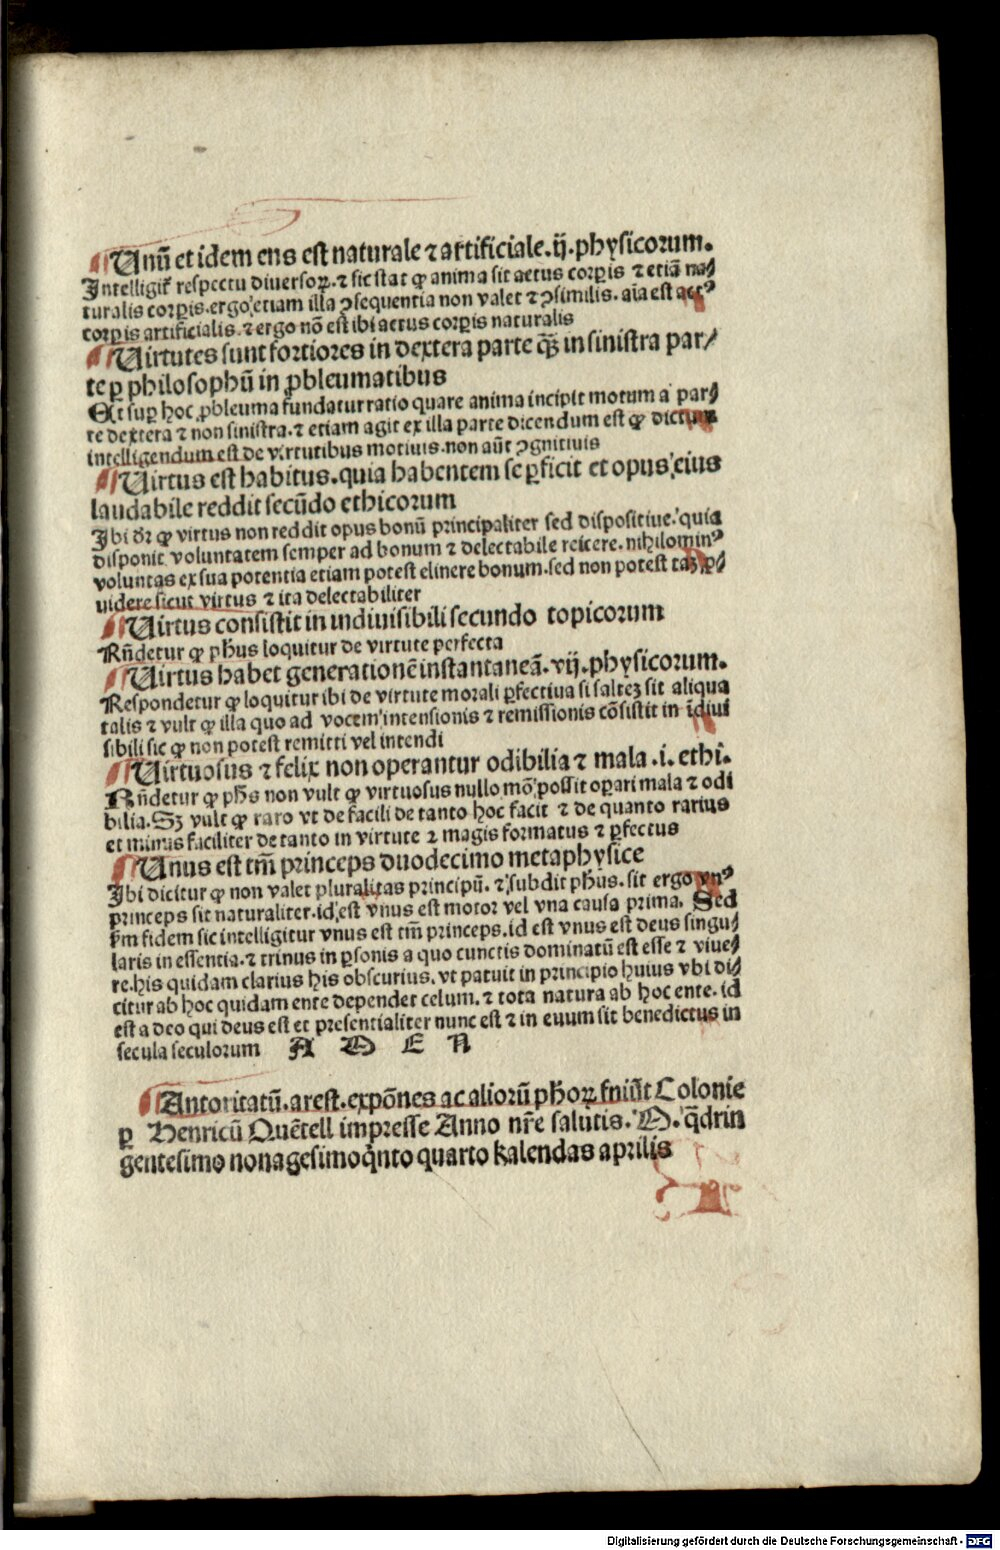 Unū et idem ens est naturale ⁊ artificiale.ij.physicorum.
Intelligit᷑ respectu diuersoꝝ.⁊ sic stat ꝙ anima sit actus corꝑis ⁊ etiā na/
turalis corꝑis.ergo etiam illa ꝯsequentia non valet ⁊ ꝯsimilis.aīa est actꝰ
corꝑis artificialis.⁊ ergo nō est ibi actus corꝑis naturalis
Uirtutes sunt fortiores in dextera parte qꝫ in sinistra par/
te ꝑ philosophū in ꝓbleumatibus
Et suꝑ hoc ꝓbleuma fundatur ratio quare anima incipit motum a par/
te dextera ⁊ non sinistra.⁊ etiam agit ex illa parte dicendum est ꝙ dictum
intelligendum est de virtutibus motiuis.non aūt ꝯgnitiuis
Uirtus est habitus.quia habentem se ꝑficit et opus eius
laudabile reddit secūdo ethicorum
Ibi dr̄ ꝙ virtus non reddit opus bonū principaliter sed dispositiue.quia
disponit voluntatem semper ad bonum ⁊ delectabile reicere.nihilominꝰ
voluntas ex sua potentia etiam potest elinere bonum.sed non potest taꝫ ꝓ/
uidere sicut virtus ⁊ ita delectabiliter
Uirtus consistit in indiuisibili secundo topicorum
Rñdetur ꝙ phus loquitur de virtute perfecta
Uirtus habet generationē instantaneā.vij.physicorum.
Respondetur ꝙ loquitur ibi de virtute morali ꝑfectiua si salteꝫ sit aliqua
talis ⁊ vult ꝙ illa quo ad vocem intensionis ⁊ remissionis cōsistit in īdiui
sibili sic ꝙ non potest remitti vel intendi
Uirtuosus ⁊ felix non operantur odibilia ⁊ mala.i.ethi.
Rñdetur ꝙ ph̄s non vult ꝙ virtuosus nullo mō possit oꝑari mala ⁊ odi
bilia.Sꝫ vult ꝙ raro vt de facili de tanto hoc facit ⁊ de quanto rarius
et minus faciliter de tanto in virtute ⁊ magis formatus ⁊ ꝑfectus
Unus est tm̄ princeps duodecimo metaphysice
Ibi dicitur ꝙ non valet pluralitas principū.⁊ subdit phūs.sit ergo vnꝰ
princeps sit naturaliter.id est vnus est motor vel vna causa prima. Sed
fm fidem sic intelligitur vnus est tm̄ princeps.id est vnus est deus singu/
laris in essentia.⁊ trinus in ꝑsonis a quo cunctis dominatū est esse ⁊ viue/
re.his quidam clarius his obscurius.vt patuit in principio huius vbi di/
citur ab hoc quidam ente dependet celum.⁊ tota natura ab hoc ente.id
est a deo qui deus est et presentialiter nunc est ⁊ in euum sit benedictus in
secula seculorum A M E N
Autoritatū.arest.expōnes ac aliorū phōꝝ finiūt Colonie
ꝑ Henricū Quētell impresse Anno nr̄e salutis.M.q̄drin
gentesimo nonagesimoq̇nto quarto kalendas aprilis
Digitalisierung gefördert durch die Deutsche Forschungsgemeinschaft - DFG